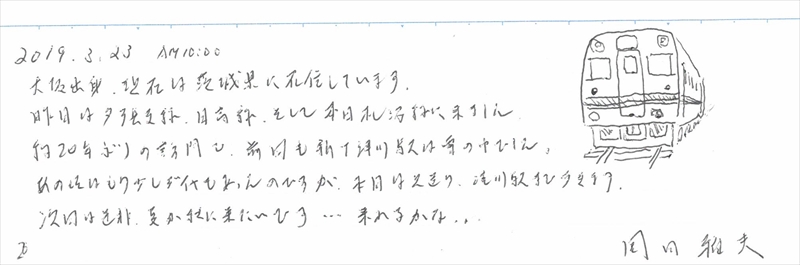 2019.3.23 AM10:00
大阪出身、現在は茨城県に在住しています。
昨日は夕張支線、日高線、そして本日札沼線に来ました
約20年ぶりの訪問で、前回も新十津川駅は雪の中でした。
あの頃はもう少し 代もあったのですが、本日は 浦川駅 です。
次回は是非、夏か秋に来たいです … 来れるかな..
岡田 雅夫